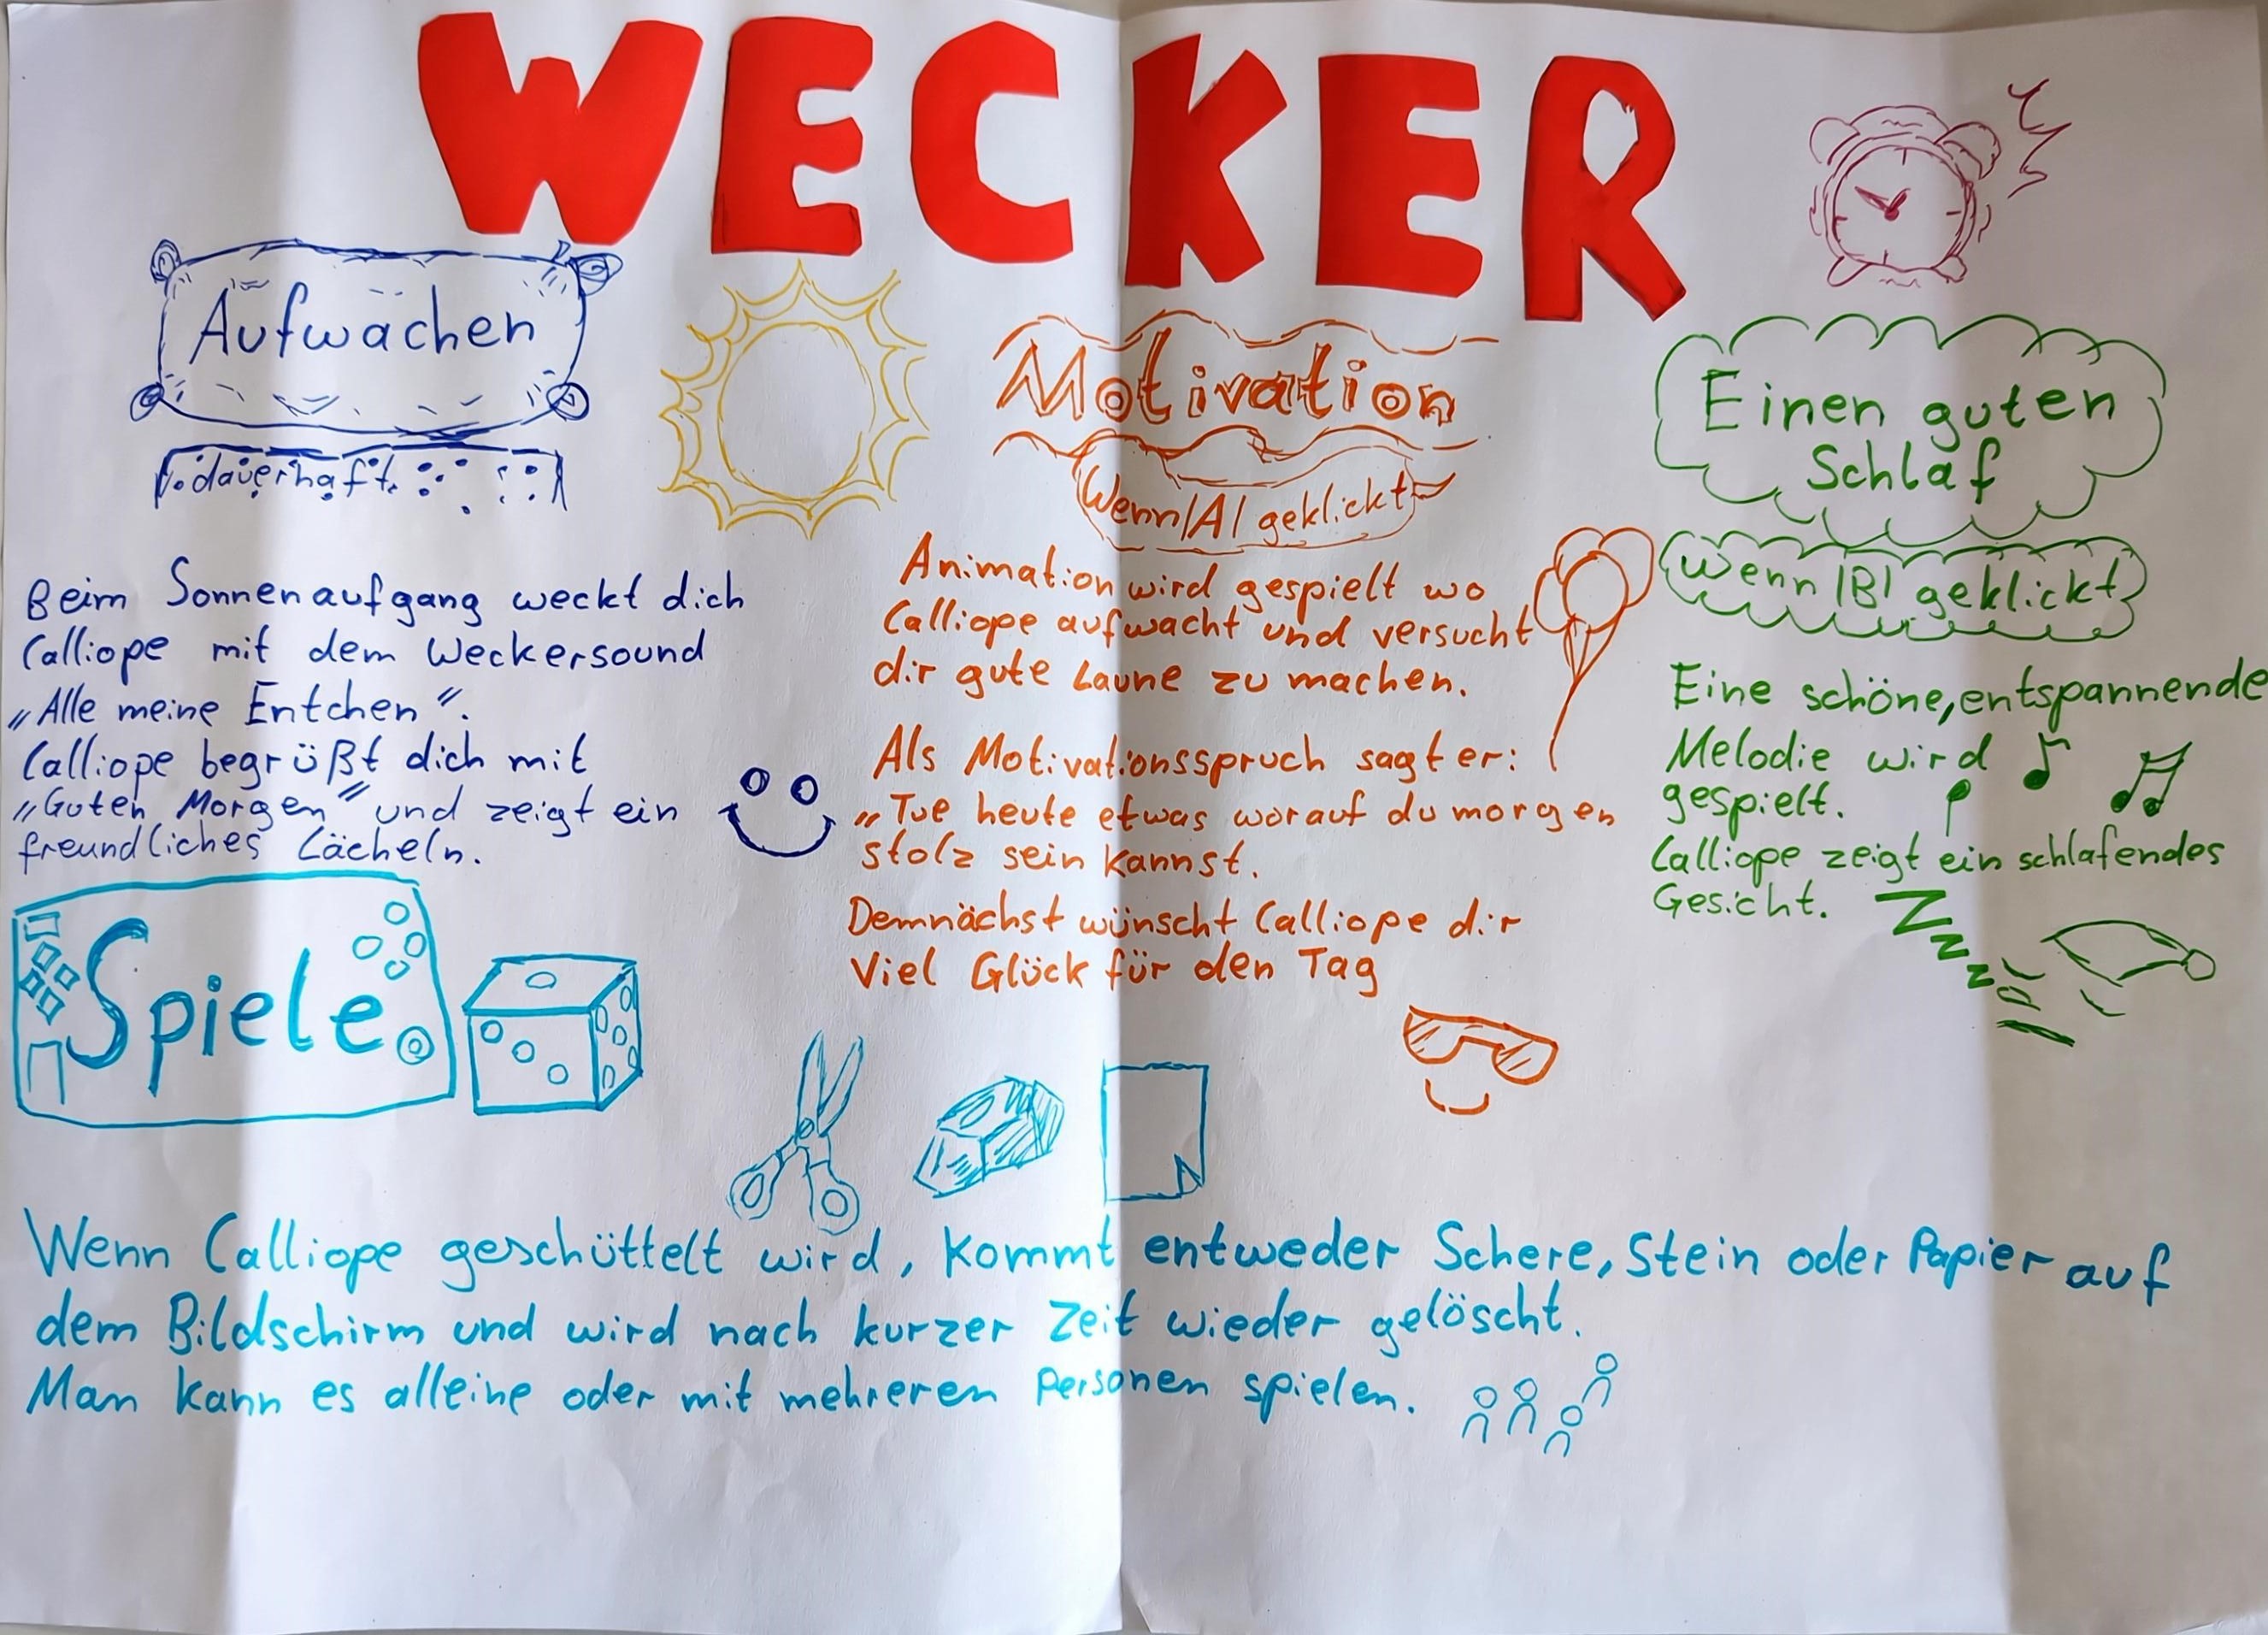 WECKER
Aufwachen
dauerhaft
Beim Sonnenaufgang weckt dich
Calliope mit dem Weckersound
„Alle meine Entchen".
Calliope begrüßt dich mit
„Guten Morgen" und zeigt ein
freundliches Lächeln.
Motivation
Wenn |A| geklickt
Animation wird gespielt wo
Calliope aufwacht und versucht
dir gute Laune zu machen.
Als Motivationsspruch sagt er:
„Tue heute etwas worauf du morgen
stolz sein kannst.
Demnächst wünscht Calliope dir
Viel Glück für den Tag
Einen guten
Schlaf
Wenn |B| geklickt
Eine schöne, entspannende
Melodie wird
gespielt.
Calliope zeigt ein schlafendes
Gesicht.
ZZZZ
Spiele
Wenn Calliope geschüttelt wird, kommt entweder Schere, Stein oder Papier auf
dem Bildschirm und wird nach kurzer Zeit wieder gelöscht.
Man kann es alleine oder mit mehreren Personen spielen.